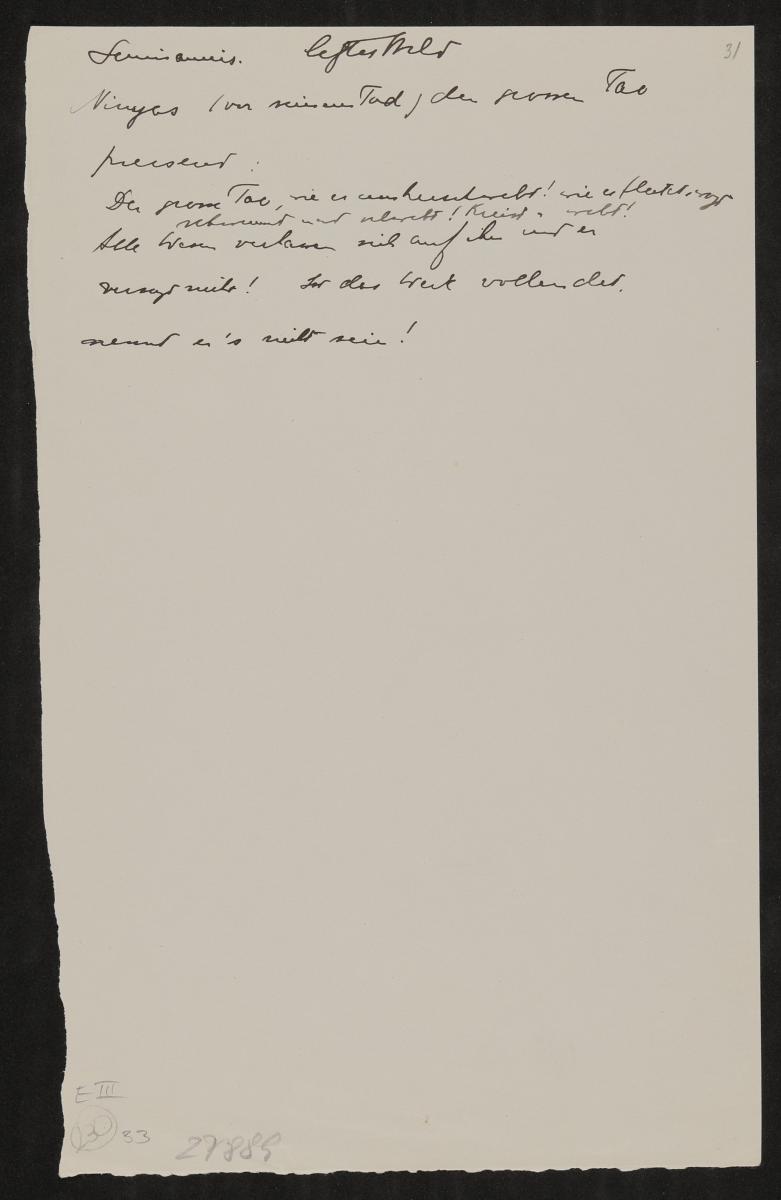 31
Semiramis. letztes Bild
Ninyas (vor seinem Tod) den grossen Tao
preisend:
Der grosse Tao, wie er umherschwebt! wie er
schwimmt und schwebt! Kreist u webt!
Alle Wesen verlassen sich auf ihn und er
versagt nicht! Ist das Werk vollendet,
nennt er's nicht sein!
E III
30 33
27889